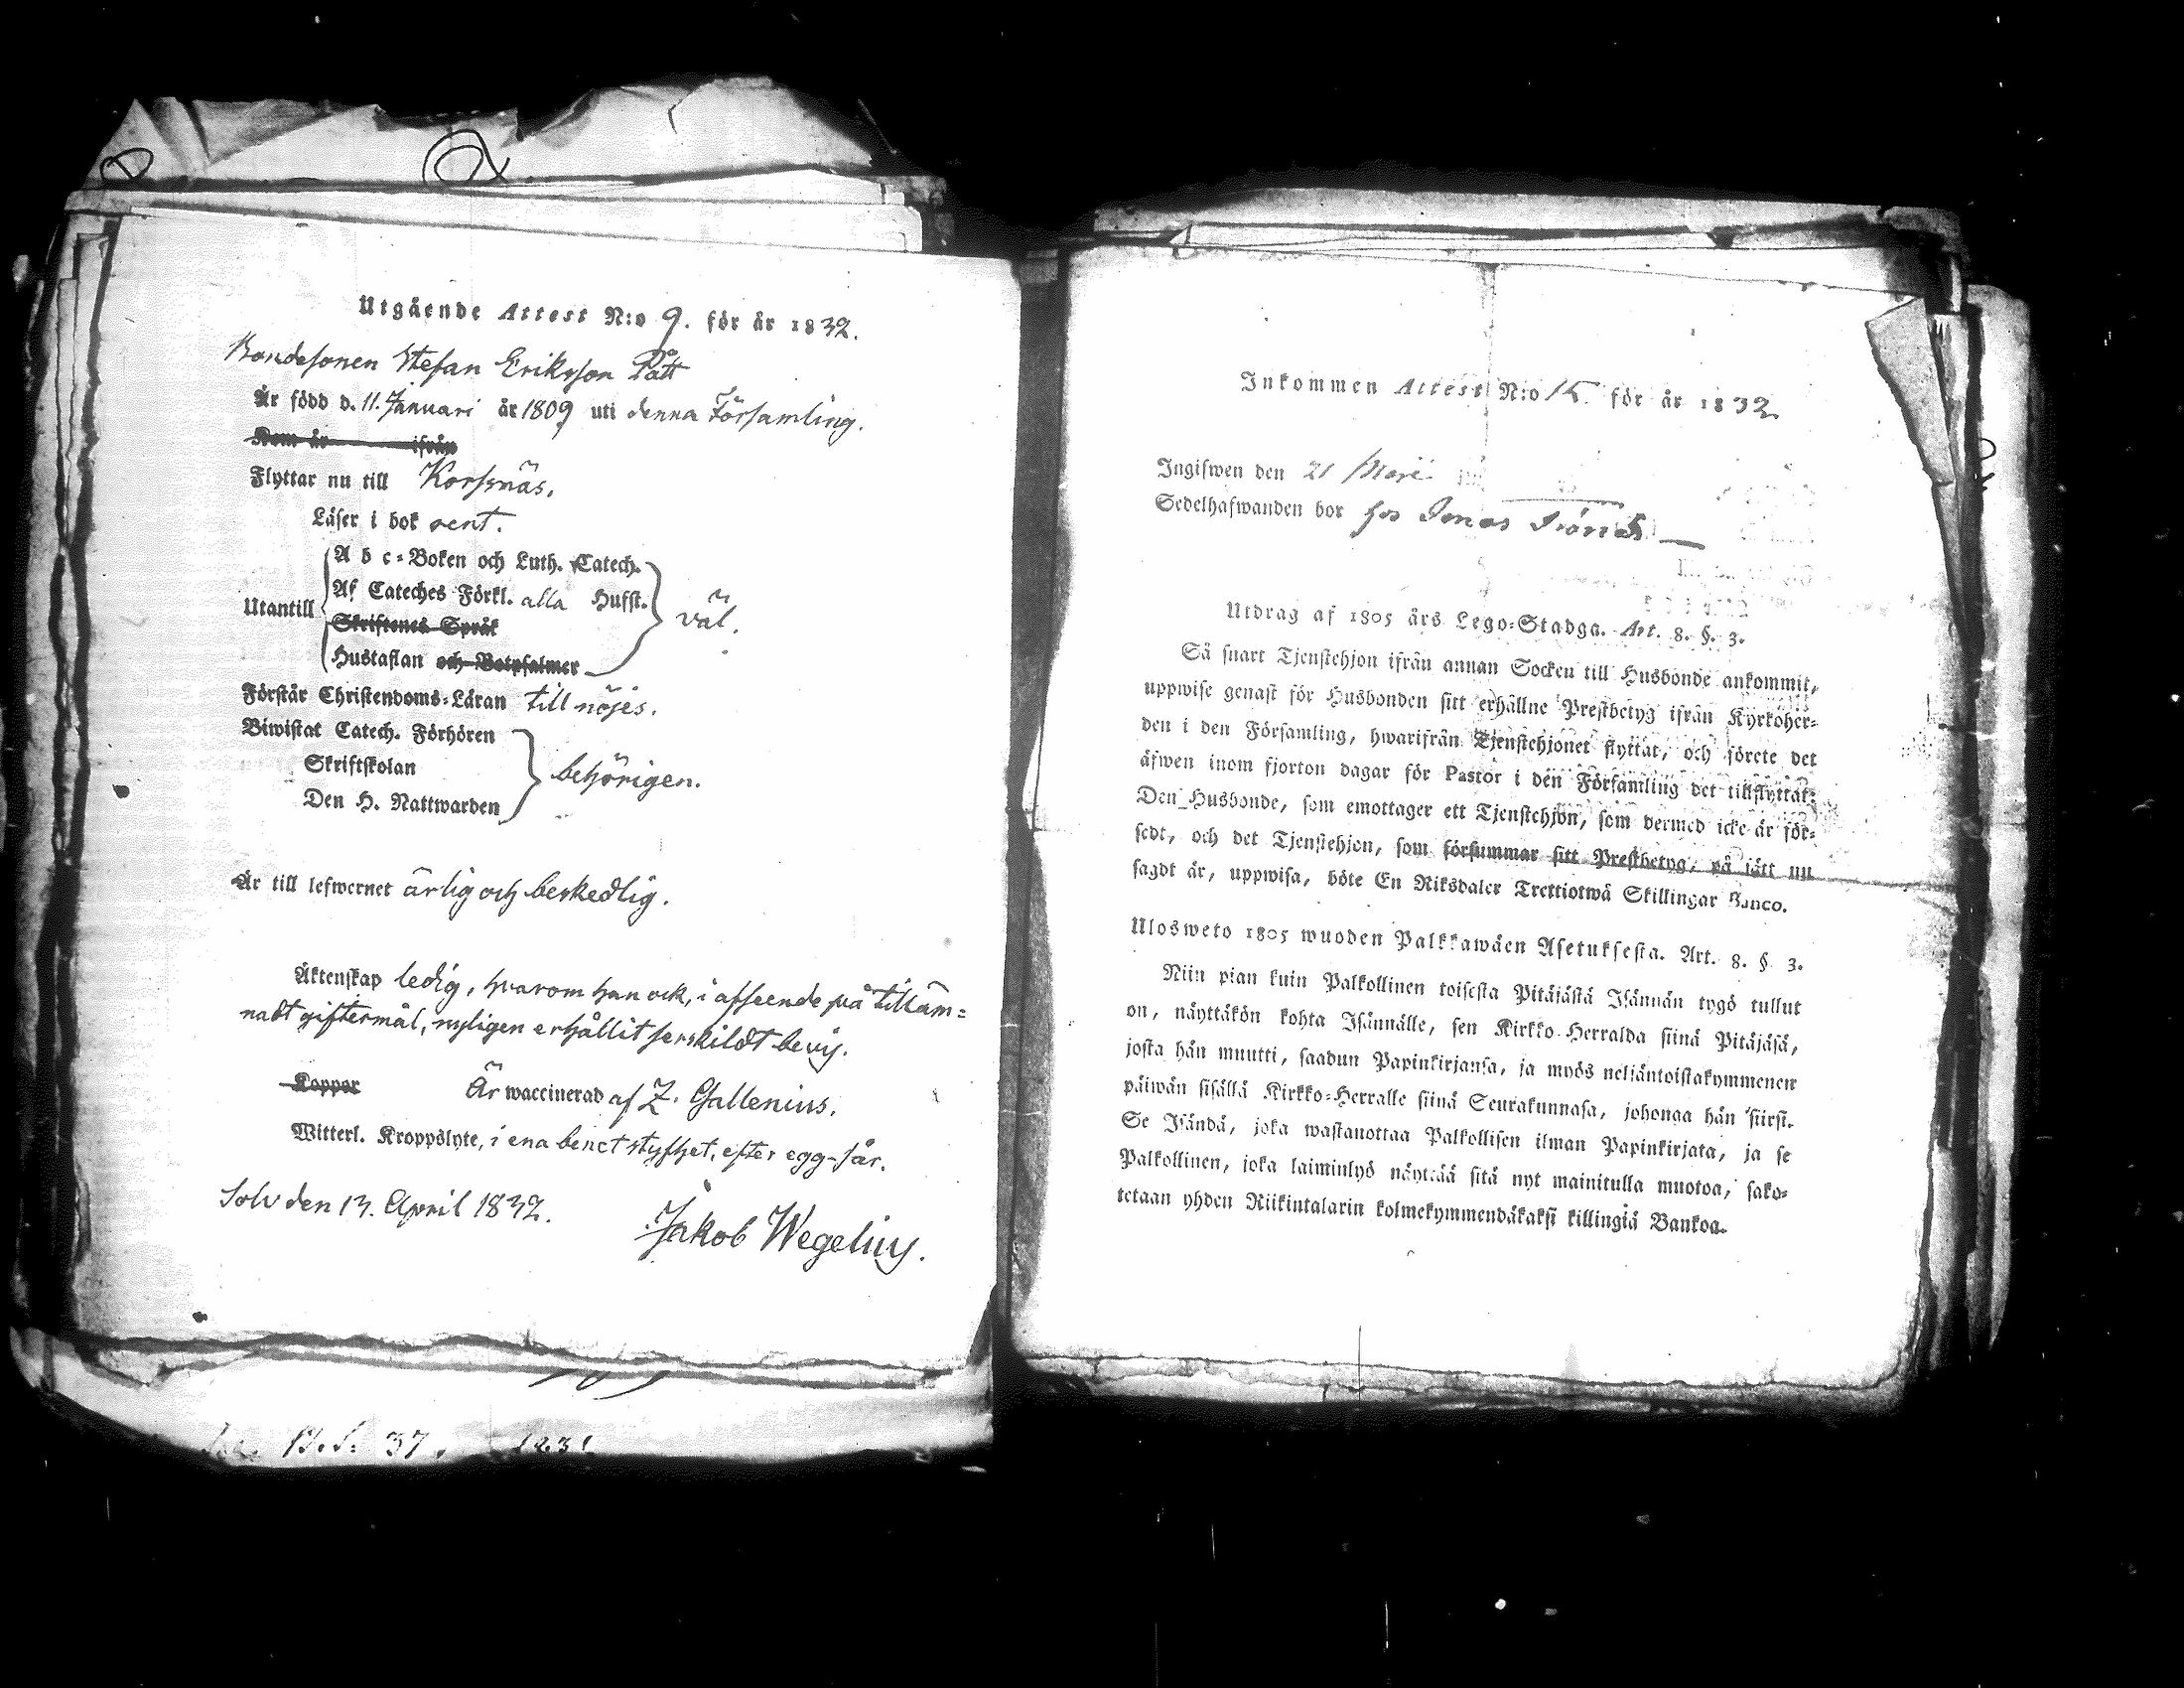 Utgående Attest N:o 9. för år 1832.
Bondesonen Stefan Eriksson Pått
Är född d. 11. Januari år 1809 uti denna Församling.
Kom år ifrån
Flyttar nu till Korsnäs.
Läser i bok rent.
Utantill
A b c-Boken och Luth. Catech.
Af Cateches Förkl. alla Hufst.
Skriftenes Språk
Hustaflan och Botpsalmer
väl.
Förstår Christendoms-Läran till nöjes.
Biwistat Catech. Förhören
Skriftskolan
Den H. Nattwarden
behörigen.
Är till lefwernet ärlig och beskedlig.
Äktenskap ledig, hvarom han ock, i afseende på tilläm-
nadt giftermål, nyligen erhållit serskildt bevis.
Koppor Är waccinerad af Z. Gallenius.
Witterl. Kroppslyte, i ena benet styfhet, efter egg-sår.
Solv den 13. April 1832.
Jakob Wegelius.
37.
Inkommen Attest N:o 15. för år 1832
Ingifwen den 21 Maji
Sedelhafwanden bor hos Jonas
Utdrag af 1805 års Lego-Stadga. Art. 8. §. 3.
Så snart Tjenstehjon ifrån annan Socken till Husbonde ankommit,
uppwise genast för Husbonden sitt erhållne Prestbetyg ifrån Kyrkoher-
den i den Församling, hwarifrån Tjenstehjonet flyttat, och förete det
äfwen inom fjorton dagar för Pastor i den Församling det tillflyttat:
Den Husbonde, som emottager ett Tjenstehjon, som dermed icke är för-
sedt, och det Tjenstehjon, som försummar sitt Prestbetyg, på sätt nu
sagdt är, uppwisa, böte En Riksdaler Trettiotwå Skillingar Banco.
Ulosweto 1805 wuoden Palkkawäen Asetuksesta. Art. 8. § 3.
Niin pian kuin Palkollinen toisesta Pitäjästä Isännän tygö tullut
on, näyttäkön kohta Isännälle, sen Kirkko-Herralda siinä Pitäjäsä,
josta hän muutti, saadun Papinkirjansa, ja myös neljäntoistakymmenen
päiwän sisällä Kirkko-Herralle siinä Seurakunnasa, johonga hän siirsi.
Se Isändä, joka wastanottaa Palkollisen ilman Papinkirjata, ja se
Palkollinen, joka laiminlyö näyttää sitä nyt mainitulla muotoa, sako-
tetaan yhden Riikintalarin kolmekymmendäkaksi killingiä Bankoa.